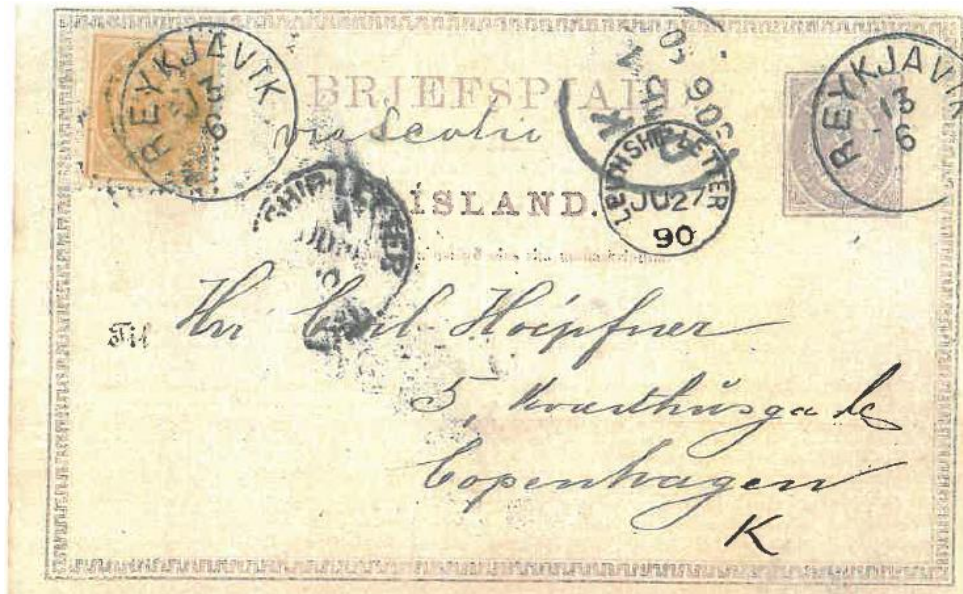 REYKJAVIK
6
BRJEFSPJALD
via Scotia
REYKJAVIK
13
6
LEITH SHIP LETTER
JU27
90
SHIP LETTER
ÍSLAND.
Til
Hrr Carl Höepfner
5, Kvæsthusgade
Copenhagen
K